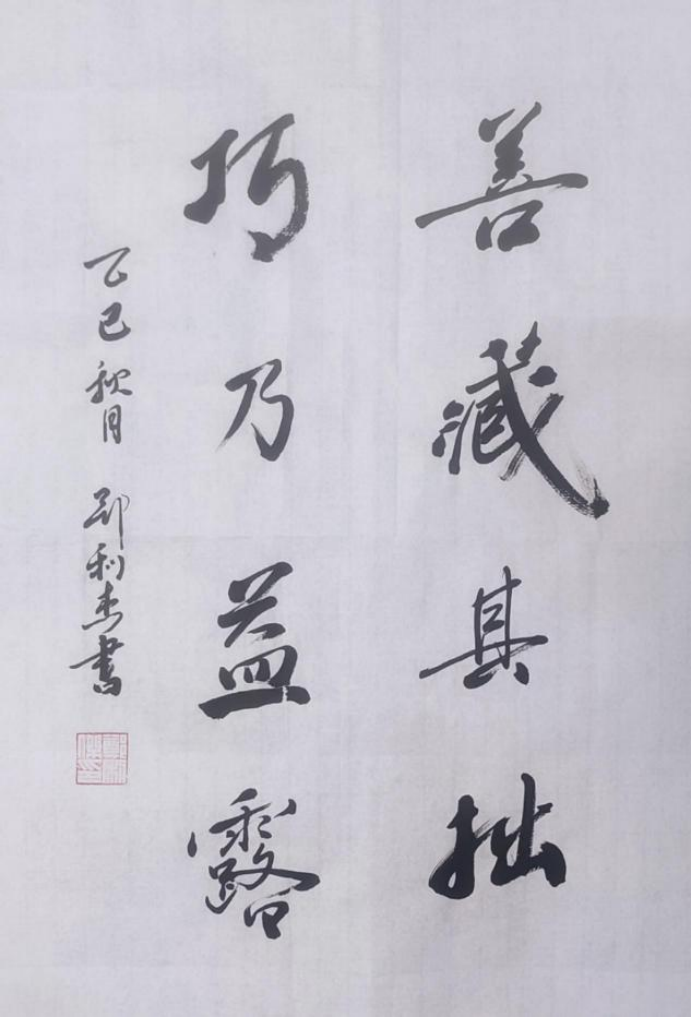 善藏其拙
巧乃益露
乙巳秋月 利杰書